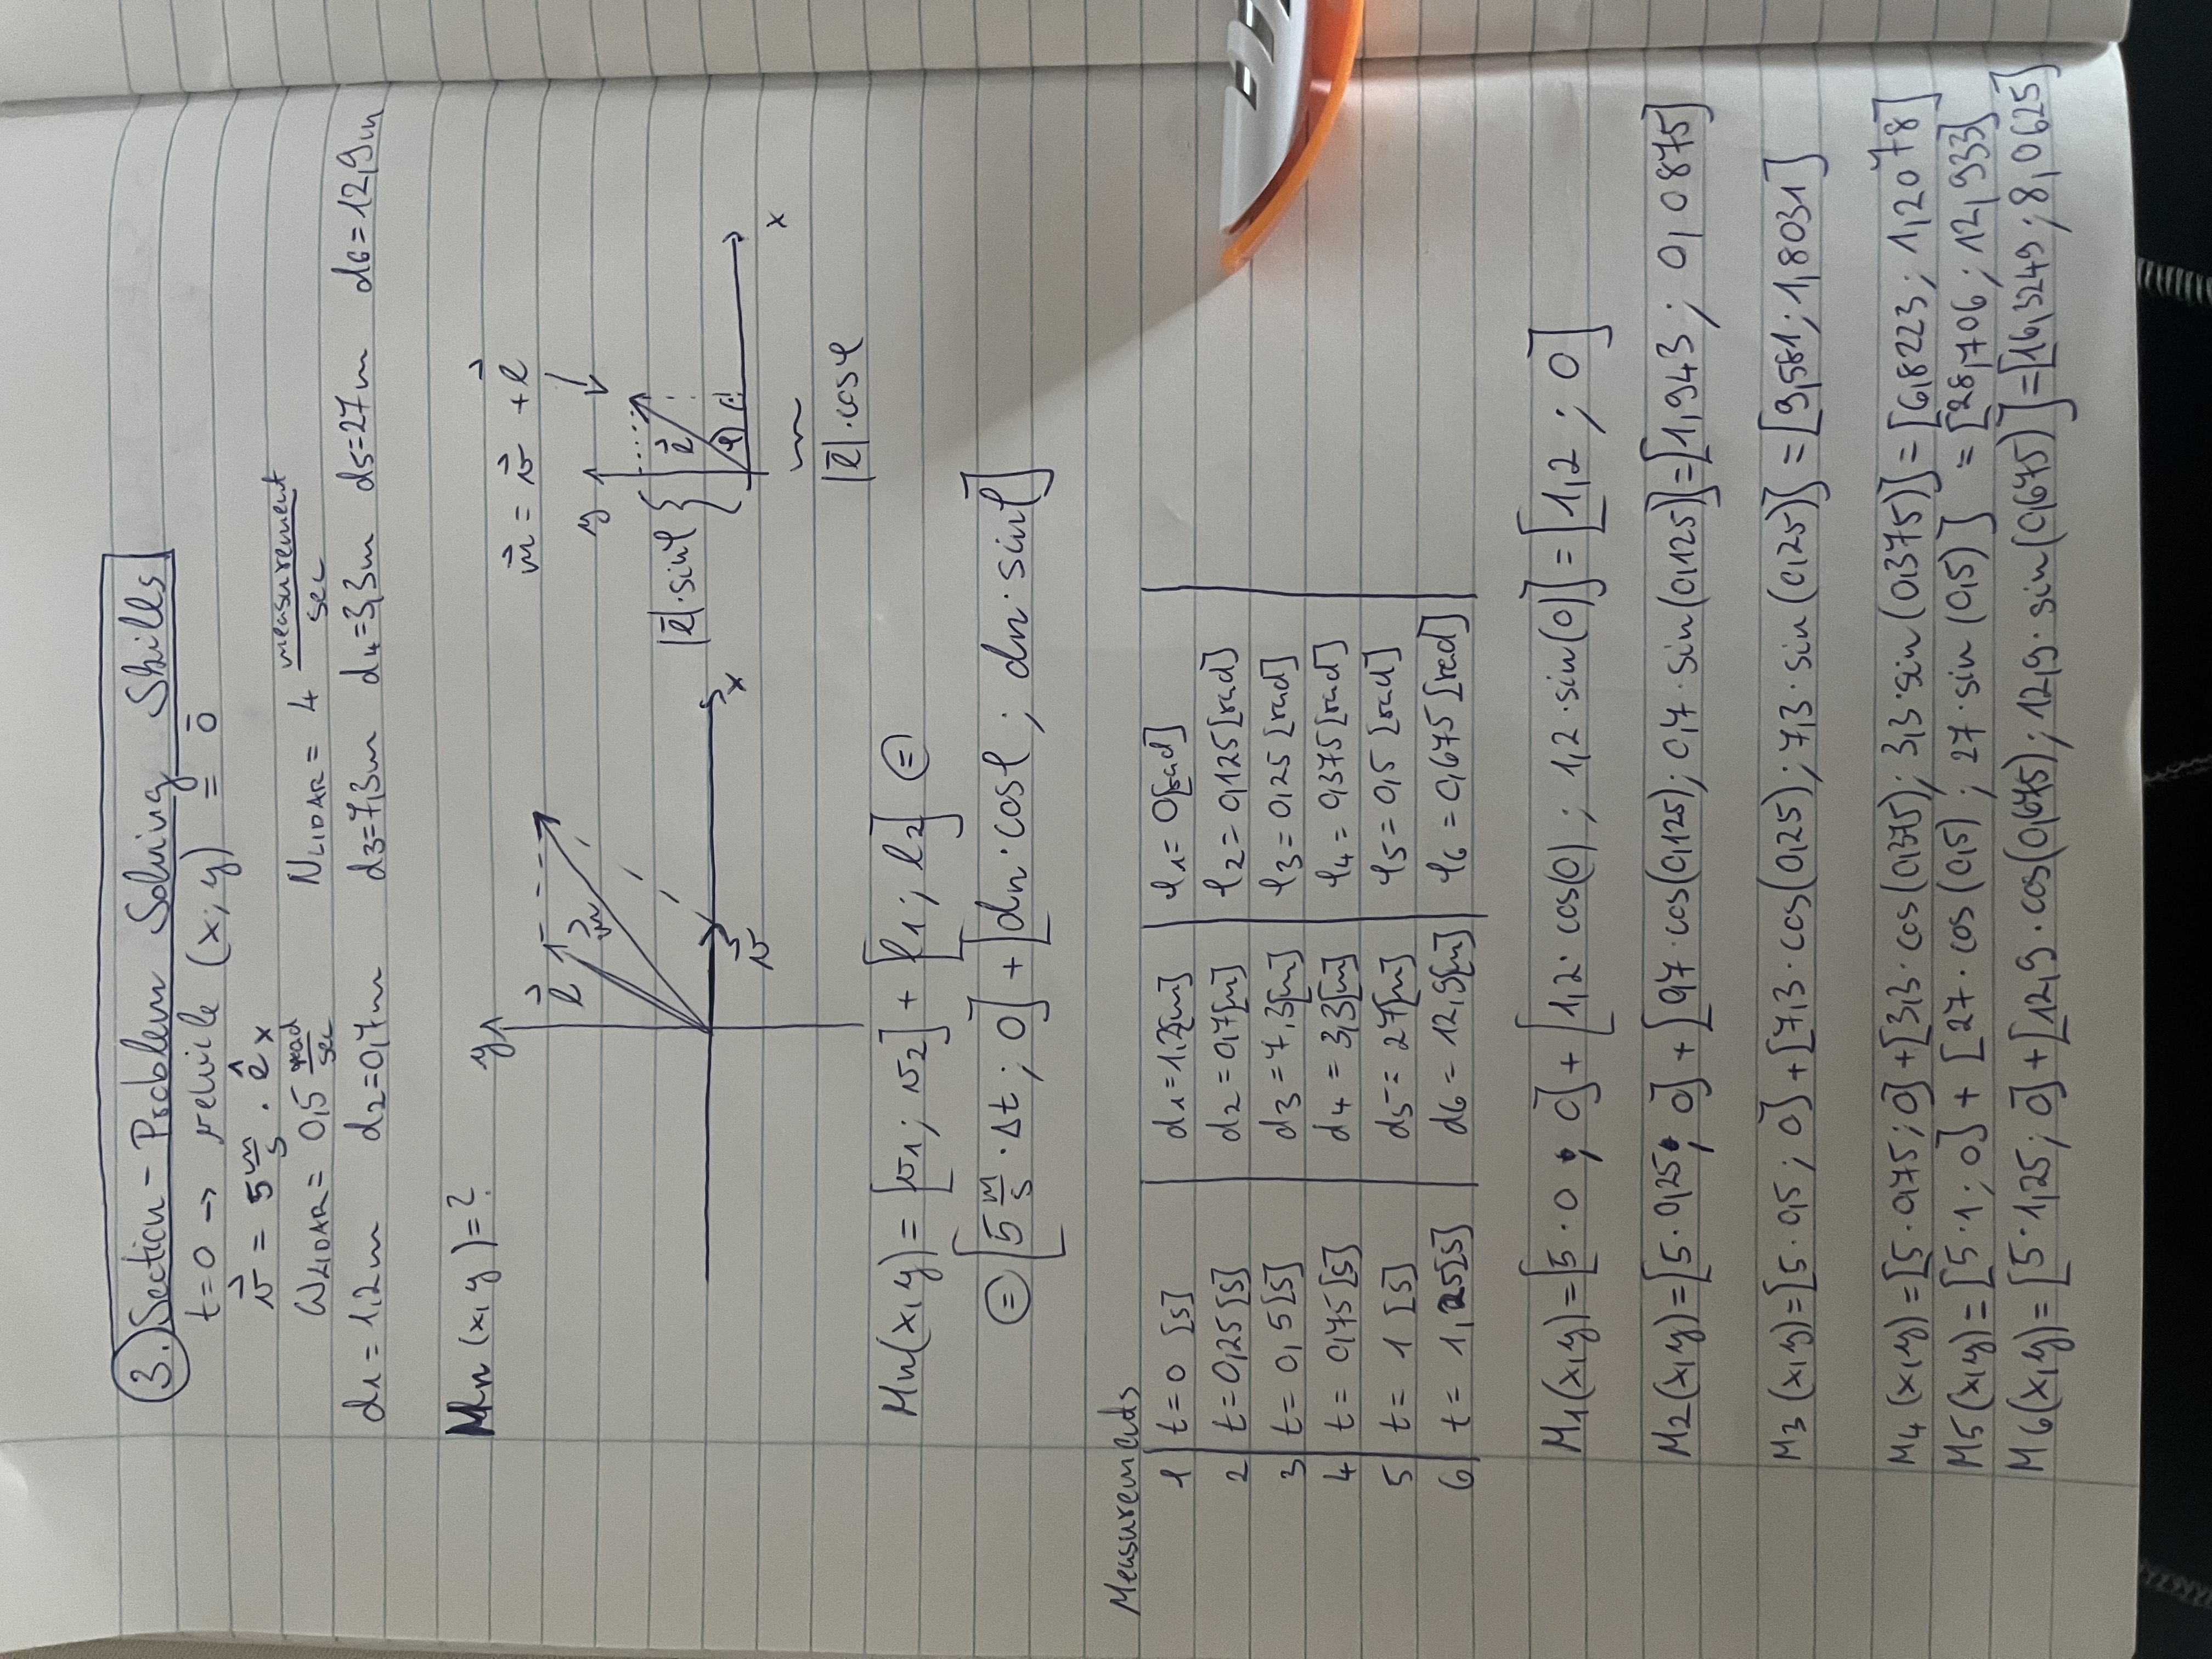 3. Section - Problem Solving Skills
t=0 → vehicle (x; y) = 0̄
v⃗ = 5 m/s · ê x
ω LIDAR = 0,5 rad/sec   N LIDAR = 4 measurement/sec
d1 = 1,2m   d2=0,7m   d3=7,3m   d4=3,3m   d5=27m   d6=12,9m
Mn (x,y)=?
y
m⃗ = v⃗ + l⃗
l⃗
m⃗
x
v⃗
y
|l̄|·sinφ
l⃗
φ
x
|l̄|·cosφ
Mn(x,y) = [v1; v2] + [l1; l2] =
= [5 m/s · Δt ; 0] + [dn·cosφ ; dn·sinφ]
Measurements
1 | t=0 [s] | d1=1,2[m] | φ1= 0[rad]
2 | t=0,25[s] | d2=0,7[m] | φ2= 0,125[rad]
3 | t= 0,5[s] | d3=7,3[m] | φ3= 0,25[rad]
4 | t= 0,75[s] | d4 = 3,3[m] | φ4= 0,375[rad]
5 | t= 1 [s] | d5= 27[m] | φ5= 0,5 [rad]
6 | t= 1,25[s] | d6= 12,9[m] | φ6 = 0,675[rad]
M1(x,y)=[5·0 ; 0] + [1,2·cos(0) ; 1,2·sin(0)] = [1,2 ; 0]
M2(x,y)=[5·0,25; 0] + [0,7·cos(0,125); 0,7·sin(0,125)]=[1,943 ; 0,0875]
M3 (x,y)=[5·0,5; 0] +[7,3·cos(0,25); 7,3·sin(0,25)] =[9,581; 1,8031]
M4 (x,y)=[5·0,75; 0] +[3,3·cos(0,375); 3,3·sin(0,375)]= [6,8223; 1,2078]
M5(x,y)=[5·1; 0] + [27·cos(0,5) ; 27·sin(0,5)] =[28,706; 12,933]
M6(x,y)=[5·1,25; 0] +[12,9·cos(0,675); 12,9·sin(0,675)]=[16,3249; 8,0625]